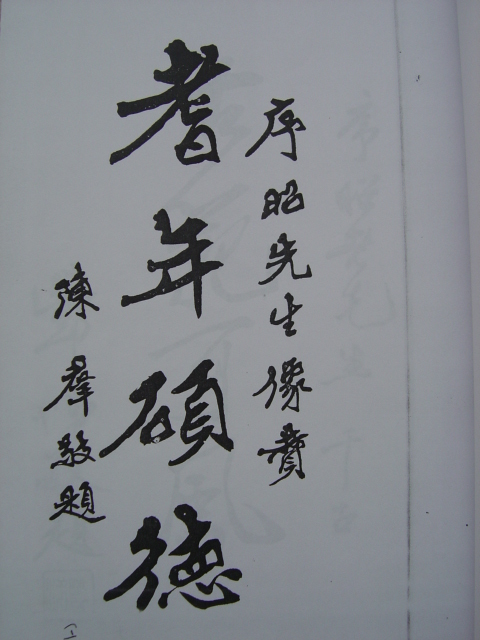 序昭先生像賛
耆年碩德
陳羣敬題